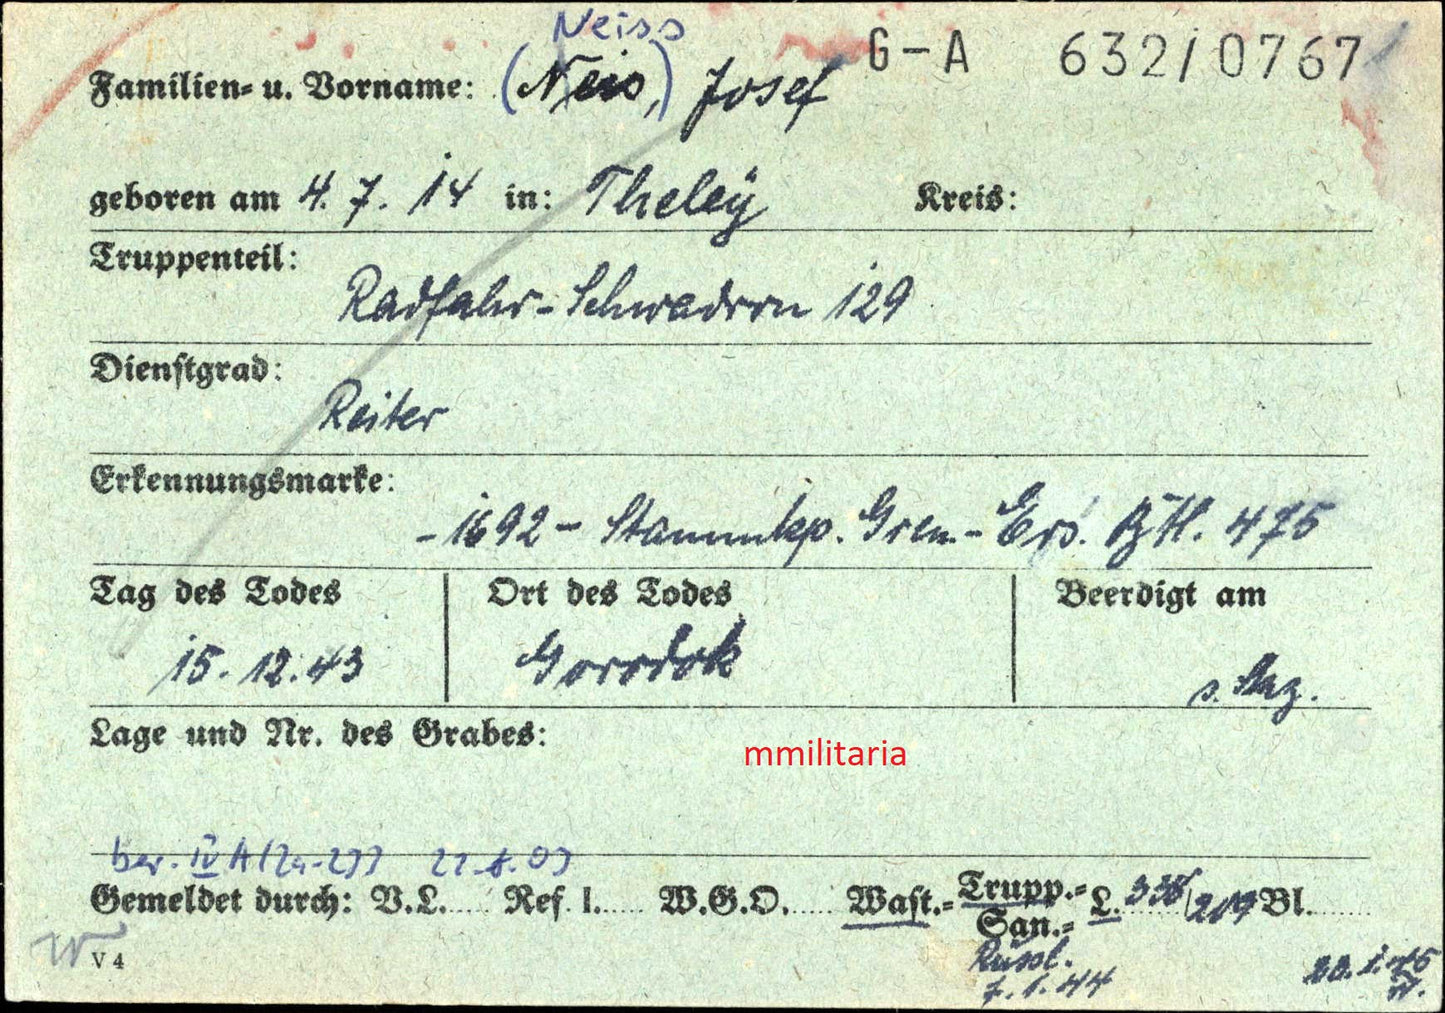 Neiss
G-A 632/0767
Familien- u. Vorname: (Neis,) Josef
geboren am 4. 7. 14 in: Theley Kreis:
Truppenteil:
Radfahr-Schwadron 129
Dienstgrad:
Reiter
Erkennungsmarke:
-1692- Stammkp. Gren.-Ers. Btl. 475
Tag des Todes Ort des Todes Beerdigt am
15.12.43 Gorodok
Lage und Nr. des Grabes:
mmilitaria
ber. IV A
Gemeldet durch: V.L..... Ref. 1..... W.G.O..... Wast.= Trupp.= L. 338/209 Bl.
San.=
Russl.
V 4
7.1.44